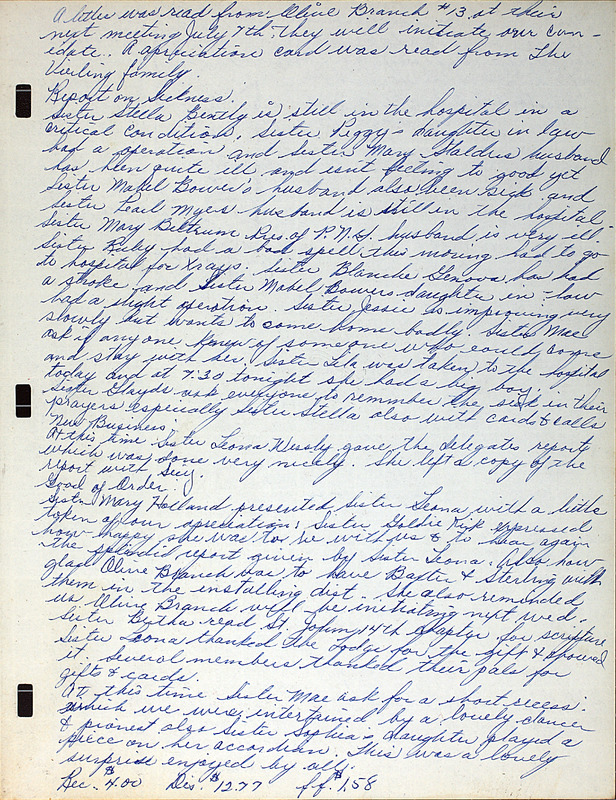 A letter was read from Olive Branch #13 at their
next meeting July 7th they will initiate our can-
idate. A appriciation card was read from The
Vierling family.
Report on Sickness.
Sister Stella Bently is still in the hospital in a
critical condition, Sister Peggy's daughter in law
had a operation and Sister Mary Haldus husband
has been quite ill and isn't feeling to good yet
Sister Mabel Bower's husband also been sick and
Sister Pearl Myers husband is still in the hospital.
Sister Mary Beltrum Pres. of P.N.G. husband is very ill.
Sister Ruby had a bad spell this moving had to go
to hospital for Xrays. Sister Blanche Genova has had
a stroke and Sister Mabel Bowers daughter in-law
had a slight operation. Sister Jessie is improving very
slowly but wants to come home badly. Sister Mae
ask if anyone knew of someone who could come
and stay with her. Sister Lila was taken to the hospital
today and at 7:30 tonight she had a big boy.
Sister Glayds ask everyone to remember the sick in their
prayers especially Sister Stella also with cards & calls
New Business.
At this time Sister Leona Wessly gave the delegates report
which was done very nicely. She left a copy of the
report with Secy.
Good of Order.
Sister Mary Holland presented Sister Leona with a little
token of our apreciation; Sister Goldie Kirk expressed
how happy she was to be with us & to hear again
the splendid report given by Sister Leona. Also how
glad Olive Branch was to have Baxter & Sterling with
them in the installing dist. She also reminded
us Olive Branch will be initiating next wed.
Sister Bertha read St. John, 14th chapter for scripture
Sister Leona thanked The Lodge for the gift & showed
it. Several members thanked their pals for
gifts & cards.
At this time Sister Mae ask for a short recess.
which we were entertained by a lovely dancer
& pianest also Sister Sophia's daughter played a
piece on her accordian. This was a lovely
surprise enjoyed by all.
Rec. $4.00 Dis. $12.77 f.f. $1.58